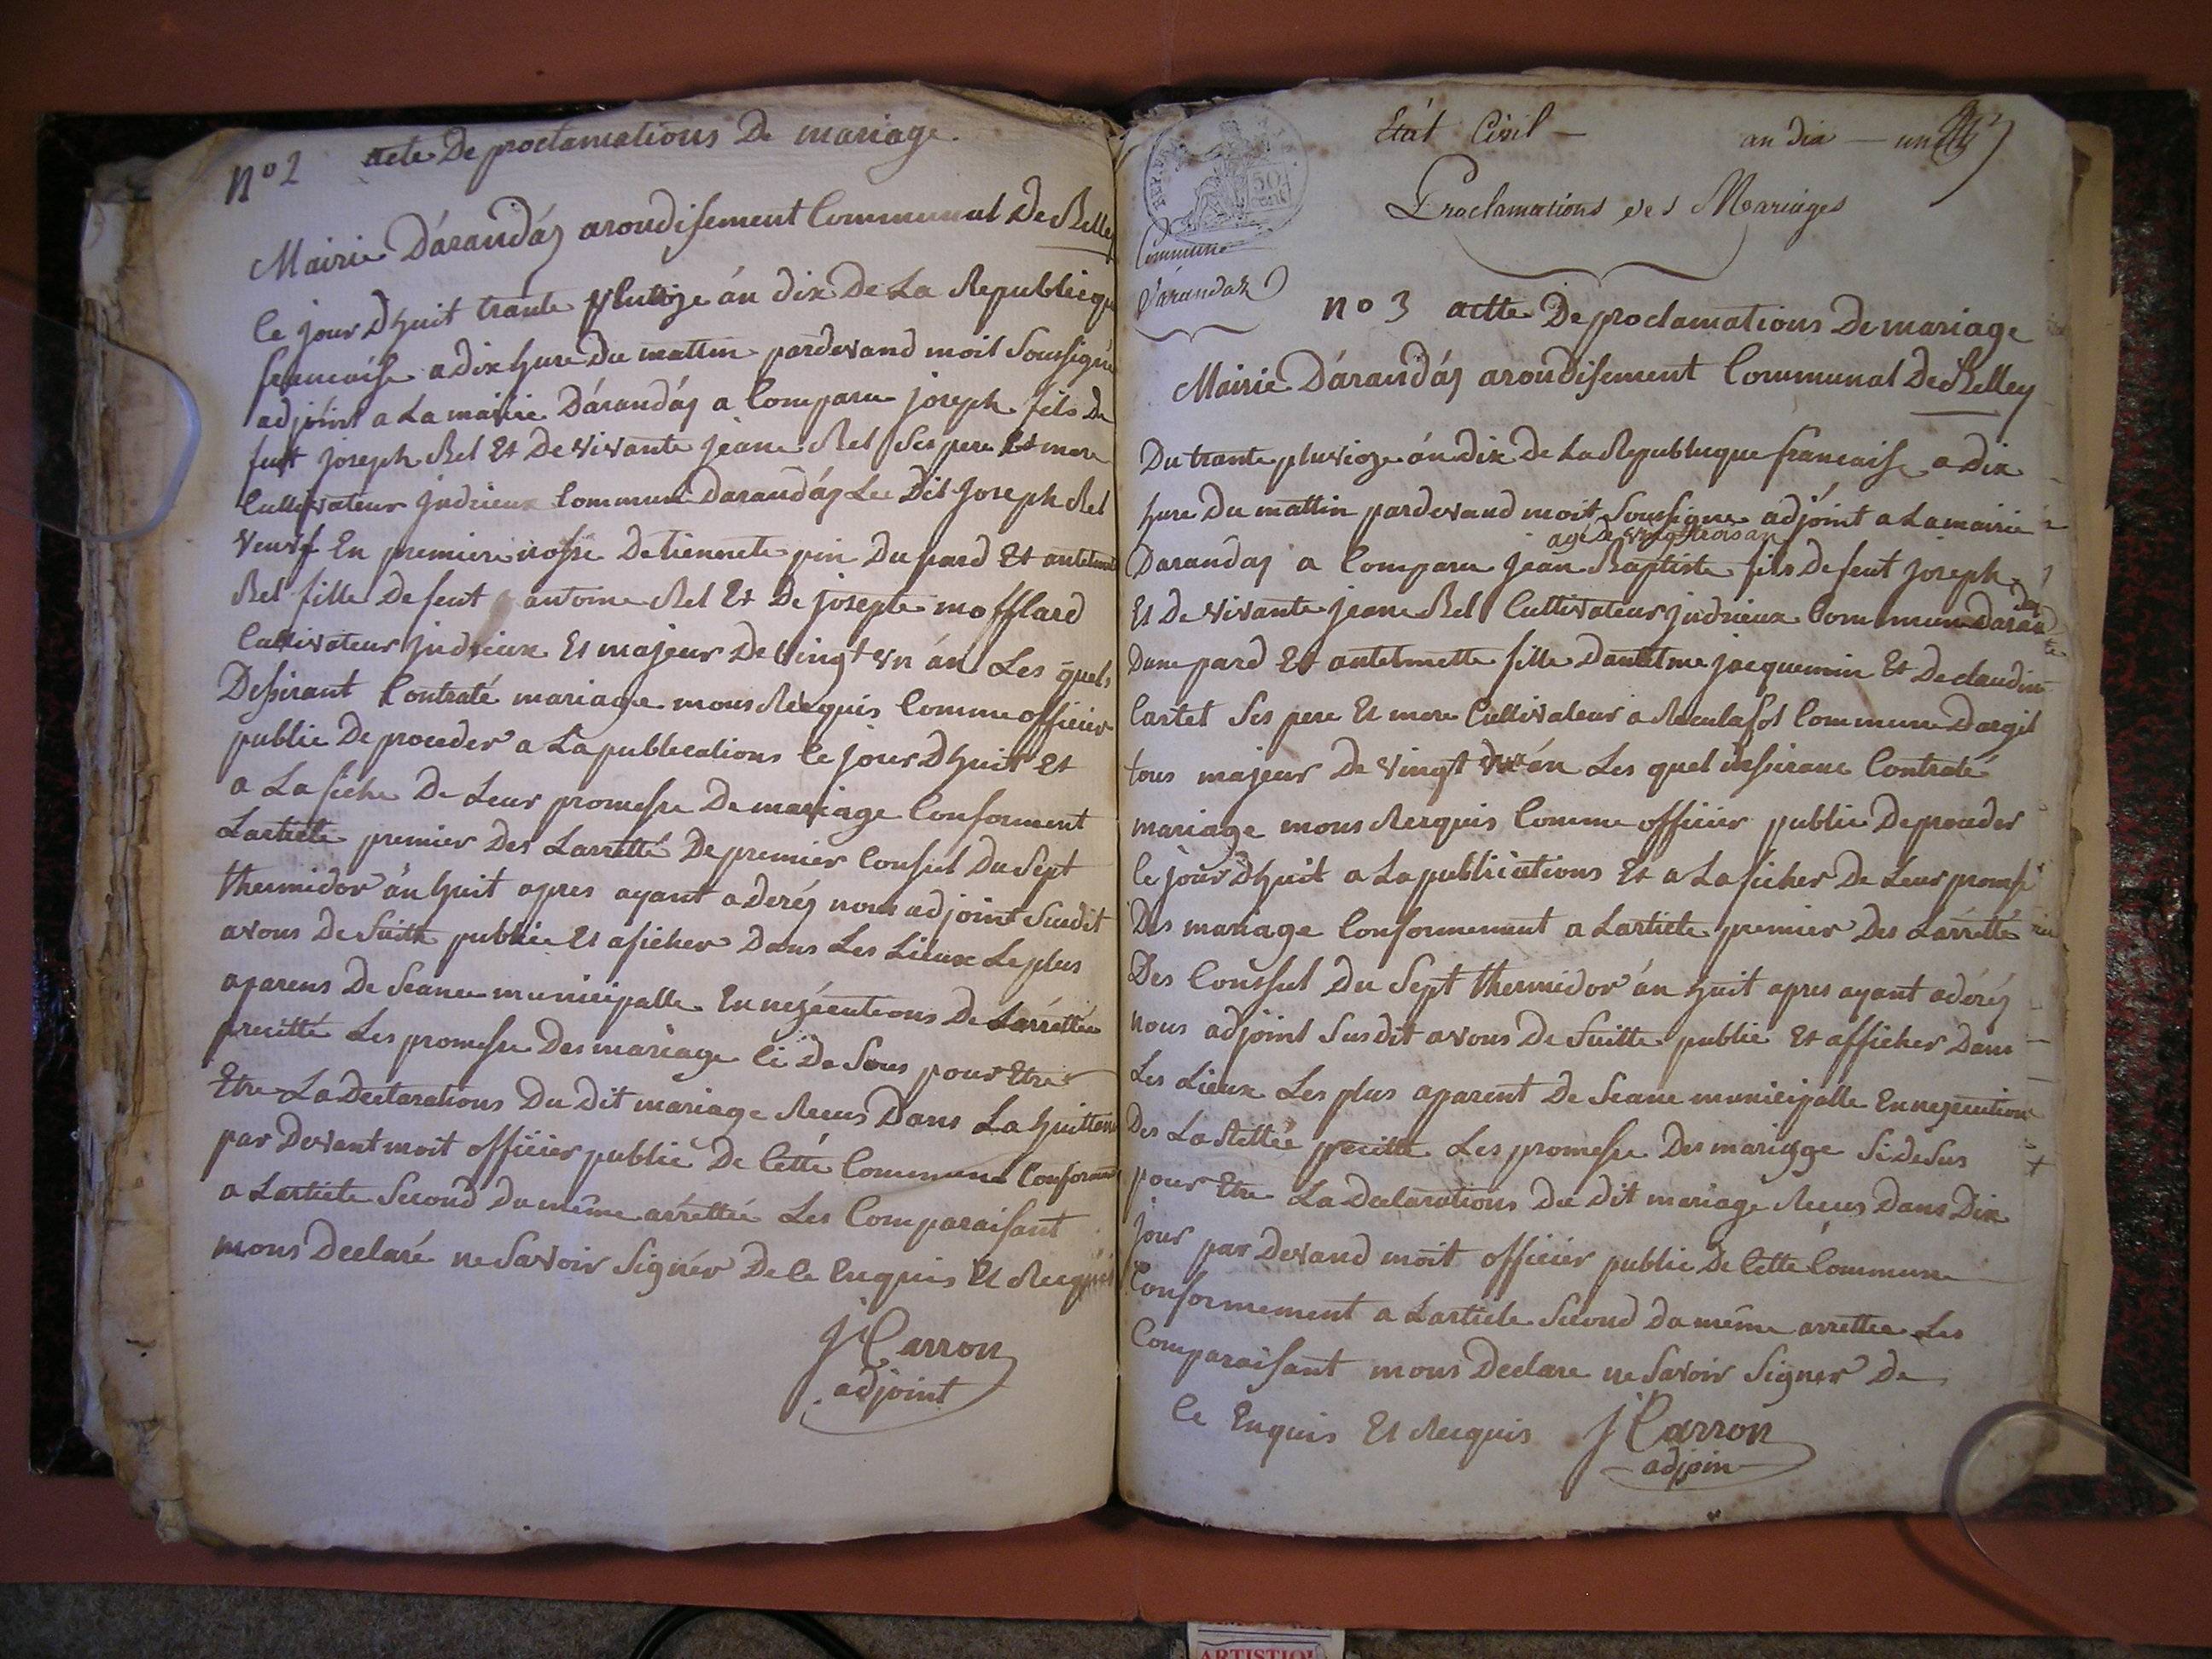 n° 2 acte De proclamations De mariage.
Mairie D'arandas arondisement Communal De Belley
Ce jour D'huit trante pluvioze án dix De La Republicque
francaise a dix hure Du mattin pardevand moit Soussigné
adjoint a La mairie D'arandas a Comparu joseph fils De
feut joseph Rel Et De vivante jeane Rel Ses pere Et mere
Cultivateur indrieux Commun Darandas Le Dit joseph Rel
veuvf En premiere nosse Detiennete pin Du pard Et antelmete
Rel fille De feut antoine Rel Et De josepte mofflard
Cultivateur jndrieux Et majeur De vingt vn án Les quels
Desirant Contraté mariage mons Requis Comme officier
public De proceder a La publications Ce jour D'huit Et
a La fiche De Leur promesse De mariage Conforment
Lartiele premier Des Larretté De premier Consul Du Sept
thermidor án huit apres ayant aderéz nous adjoint Susdit
avons De Suitte publiee Et aficher Dans Les Lieux Le plus
aparens De Seance municipalle Ennezécutions De Larrettée
precitté Les promesse Des mariage Ci De Sous pour Etre
Etre La Declarations Du Dit mariage Recus Dans La huittene
par Devant moit officier public De Cette Commune Conforment
a Lartiele Second Du même arrettée Les Comparaisant
mons Declaré ne Savoir Signér De Ce Enquis Et Requis
J Carron
adjoint
Etat Civil — an dix — un
Proclamations des Mariages
Commune
D'arandas
n° 3 actte De proclamations De mariage
Mairie D'arandas arondisement Communal De Belley
Du trante pluvioze án dix De La Republicque francaise a dix
hure Du mattin pardevand moit Soussigne adjoint a La mairie
agé De vingt trois an
Darandas a Comparu jean Baptiste fils De feut joseph
Et De vivante jeane Rel Cultivateur jndrieux Commun Daran
das
Dune pard Et antelmette fille Dantelme jacquemin Et De claudine
Cartet Ses pere Et mere Cultivateur a Reculafol Commune Dargit
tous majeur De vingt vn án Les quel desirant Contraté
mariage mons Requis Comme officier public De proceder
Ce jour D'huit a La publications Et a La ficher De Leur promesse
Des mariage Conformement a Lartiele premier Des Larretté
Des Consul Du Sept thermidor án huit apres ayant aderéz
nous adjoint Sus dit avons De Suitte publié Et afficher Dans
Les Lieux Les plus aparent De Seance municipalle Ennezecution
Des La Rettée precitte Les promesse Des mariage Si de Sus
pour Etre La Declarations Du Dit mariage Recus Dans Dix
jour par Devand moit officier public De Cette Commune
Conformement a Lartiele Second Du même arrettee Les
Comparaisant mons Declare ne Savoir Signer De
Ce Enquis Et Requis J Carron
adjoin